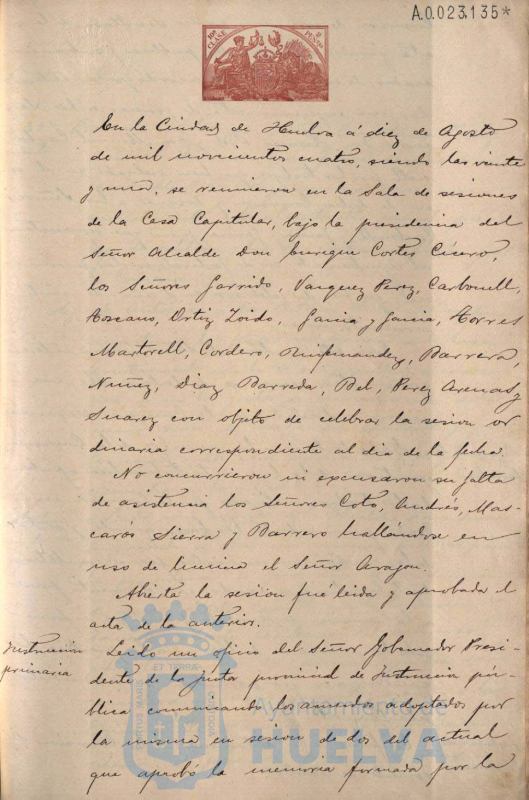 A.0.023,135*
10ª CLASE
2 PESETAS
En la Ciudad de Huelva á diez de Agosto
de mil novecientos cuatro, siendo las veinte
y una, se reunieron en la Sala de sesiones
de la Casa Capitular, bajo la presidencia del
Señor Alcalde Don Enrique Cortes Cícero,
los Señores Garrido, Vazquez Perez, Carbonell,
Toscano, Ortiz Zoido, Garcia y Garcia, Torres
Martorell, Cordero, Barrera,
Nuñez, Diaz Barreda, Bel, Perez Arenas y
Suarez con objeto de celebrar la sesion or
dinaria correspondiente al dia de la fecha.
No concurrieron ni excusaron su falta
de asistencia los Señores Coto, Andrés, Mas-
carós Sierra y Barrero hallándose en
uso de licencia el Señor Aragon.
Abierta la sesion fué leida y aprobada el
acta de la anterior.
Instrucción
primaria
Leido un oficio del Señor Gobernador Presi-
dente de la Junta provincial de Instruccion pú-
blica comunicando los acuerdos adoptados por
la misma en sesion de dos del actual
que aprobó la memoria formada por la
Ayuntamiento de
HUELVA